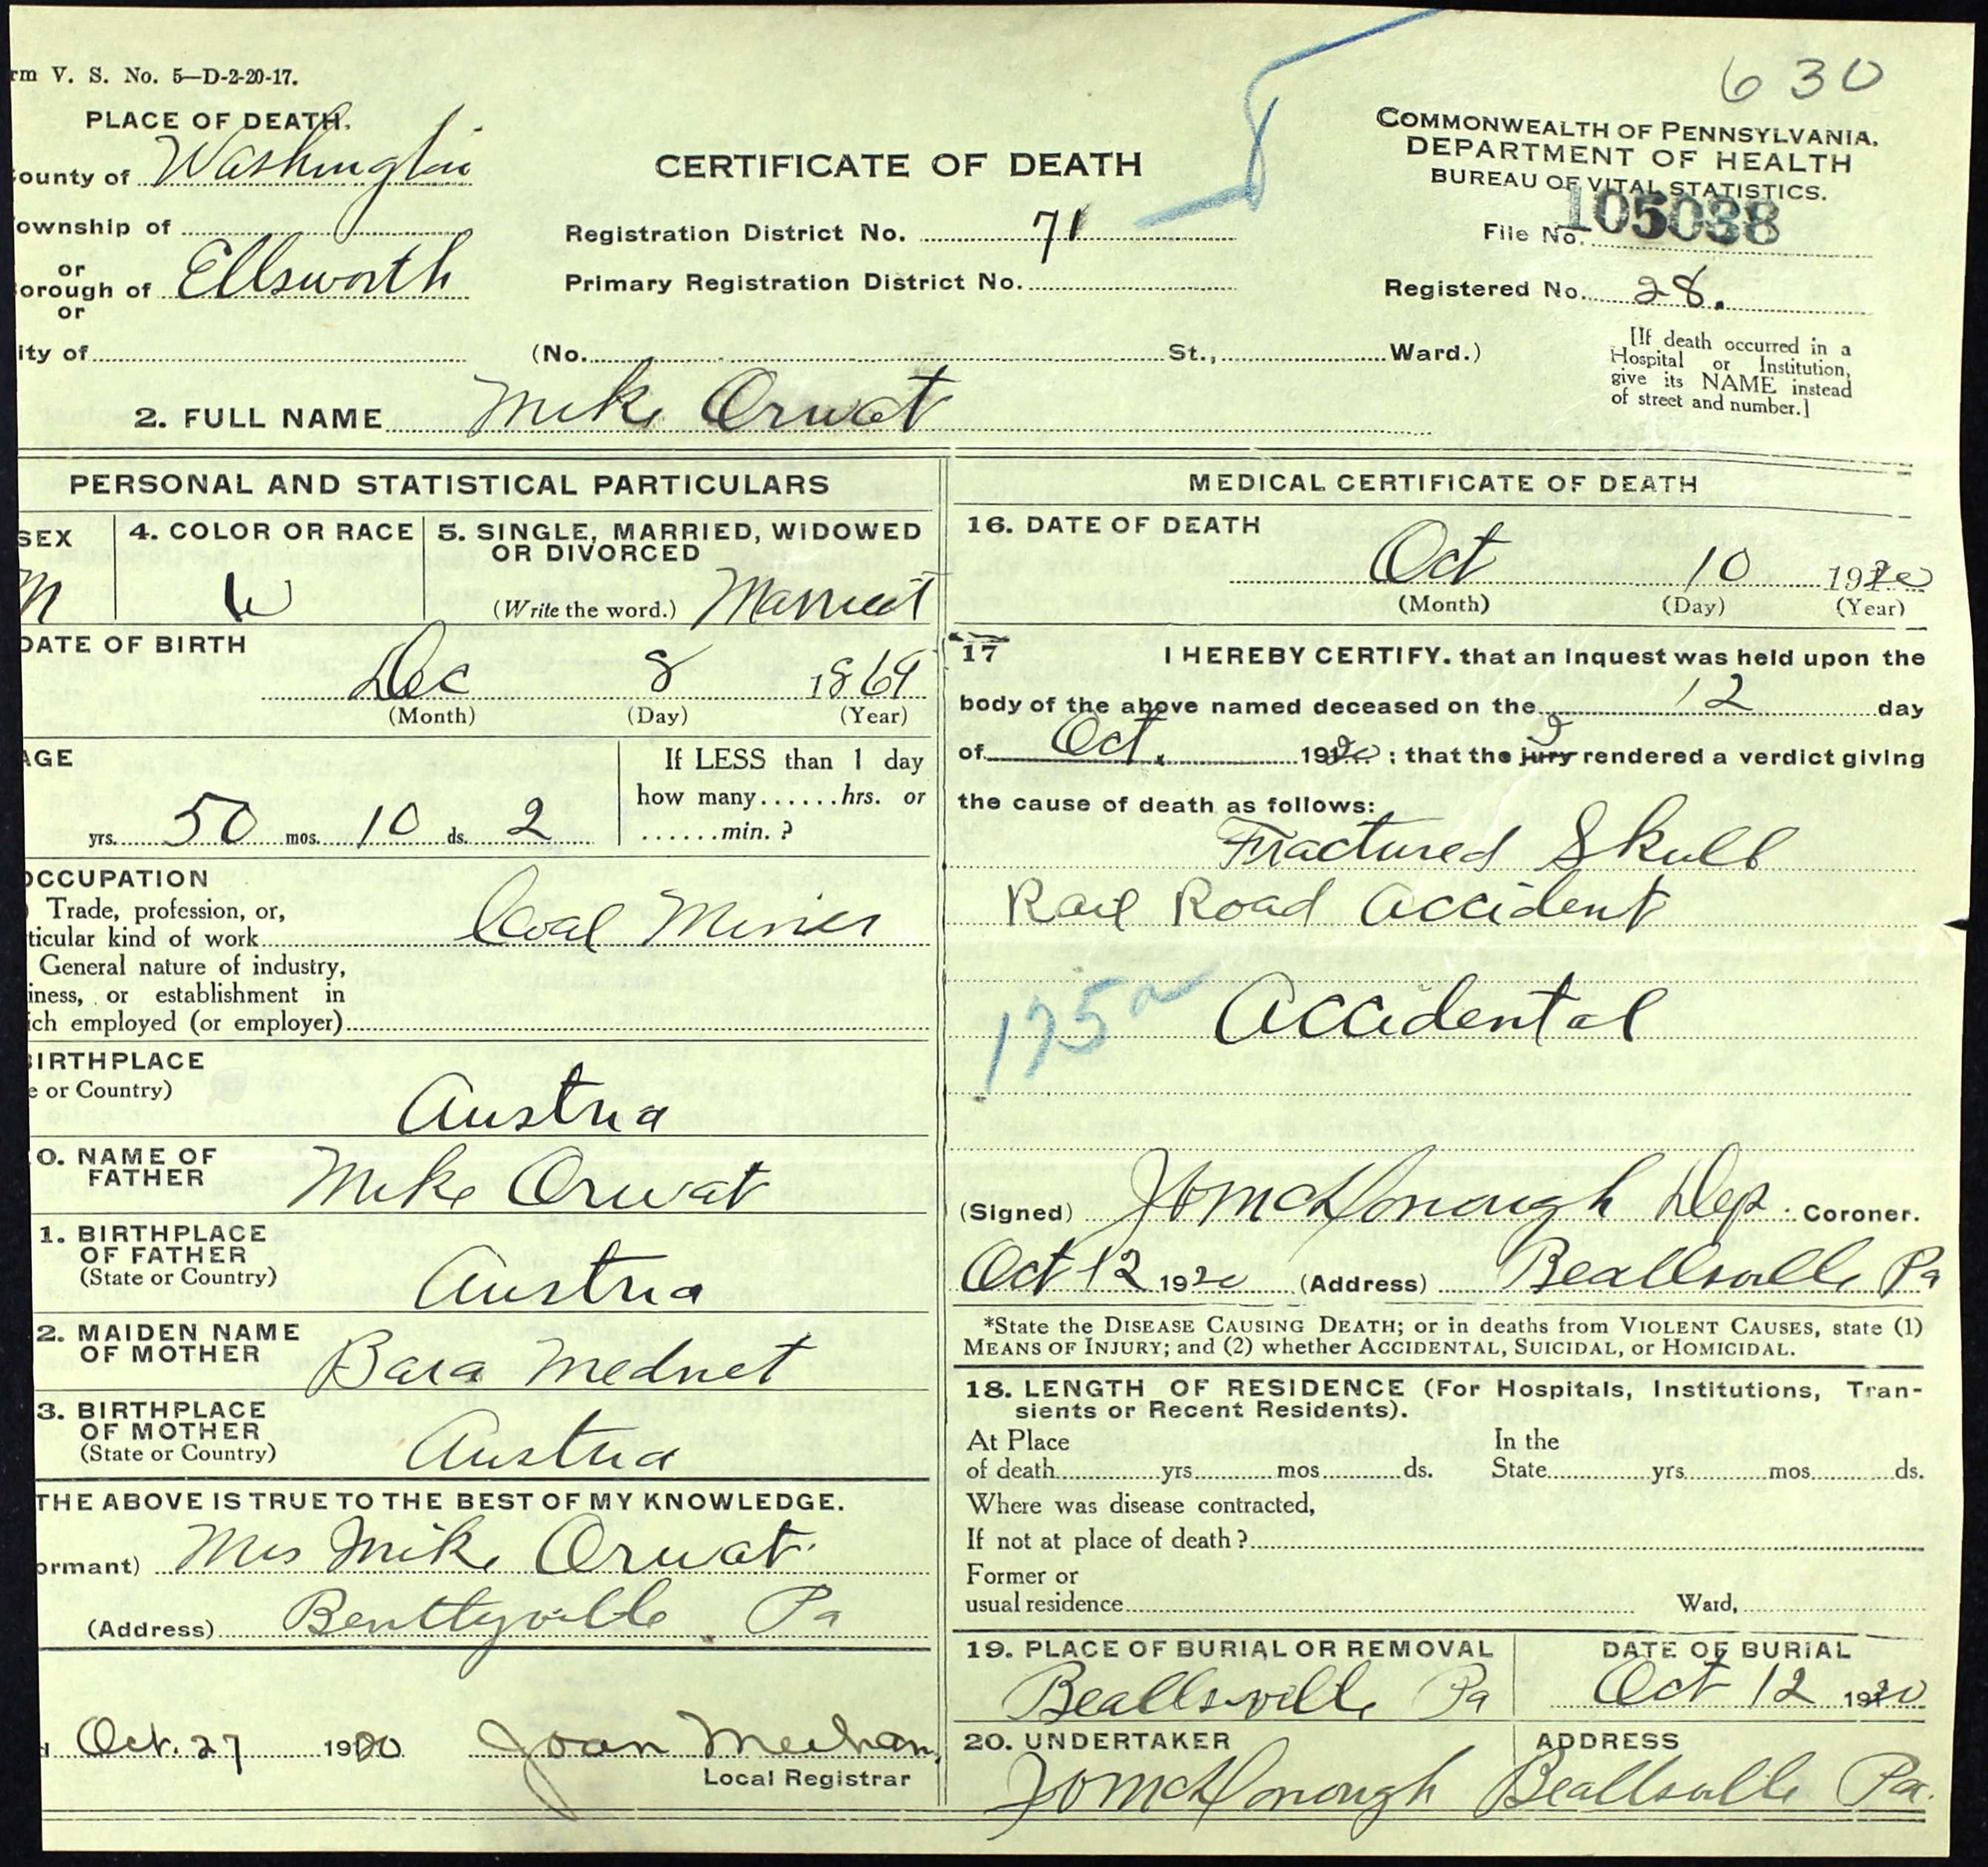 630
rm V. S. No. 5—D-2-20-17.
PLACE OF DEATH.
ounty of Washington
ownship of
or
orough of Ellsworth
or
ity of (No. St., Ward.)
CERTIFICATE OF DEATH
Registration District No. 71
Primary Registration District No.
COMMONWEALTH OF PENNSYLVANIA.
DEPARTMENT OF HEALTH
BUREAU OF VITAL STATISTICS.
File No. 105038
Registered No. 28.
[If death occurred in a
Hospital or Institution,
give its NAME instead
of street and number.]
2. FULL NAME Mike Orwat
PERSONAL AND STATISTICAL PARTICULARS
SEX
M
4. COLOR OR RACE
W
5. SINGLE, MARRIED, WIDOWED
OR DIVORCED
(Write the word.) Married
DATE OF BIRTH
Dec 8 1869
(Month) (Day) (Year)
AGE
yrs. 50 mos. 10 ds. 2
If LESS than 1 day
how many......hrs. or
......min. ?
OCCUPATION
) Trade, profession, or,
ticular kind of work Coal Miner
General nature of industry,
iness, or establishment in
ich employed (or employer)
BIRTHPLACE
e or Country)
Austria
0. NAME OF
FATHER
Mike Orwat
1. BIRTHPLACE
OF FATHER
(State or Country)
Austria
2. MAIDEN NAME
OF MOTHER
Bara Mednet
3. BIRTHPLACE
OF MOTHER
(State or Country)
Austria
THE ABOVE IS TRUE TO THE BEST OF MY KNOWLEDGE.
ormant) Mrs Mike Orwat
(Address) Benttyville Pa
Oct. 27 1920
Local Registrar
MEDICAL CERTIFICATE OF DEATH
16. DATE OF DEATH
Oct 10 1920
(Month) (Day) (Year)
17 I HEREBY CERTIFY. that an inquest was held upon the
body of the above named deceased on the 12 day
of Oct. 1920 ; that the jury rendered a verdict giving
the cause of death as follows:
Fractured Skull
Rail Road Accident
Accidental
175
(Signed) JOMcDonough Dep. Coroner.
Oct 12 1920 (Address) Beallsville Pa
*State the DISEASE CAUSING DEATH; or in deaths from VIOLENT CAUSES, state (1)
MEANS OF INJURY; and (2) whether ACCIDENTAL, SUICIDAL, or HOMICIDAL.
18. LENGTH OF RESIDENCE (For Hospitals, Institutions, Tran-
sients or Recent Residents).
At Place In the
of death yrs mos ds. State yrs mos ds.
Where was disease contracted,
If not at place of death ?
Former or
usual residence Ward,
19. PLACE OF BURIAL OR REMOVAL
Beallsville Pa
DATE OF BURIAL
Oct 12 1920
20. UNDERTAKER
JOMcDonough
ADDRESS
Beallsville Pa.